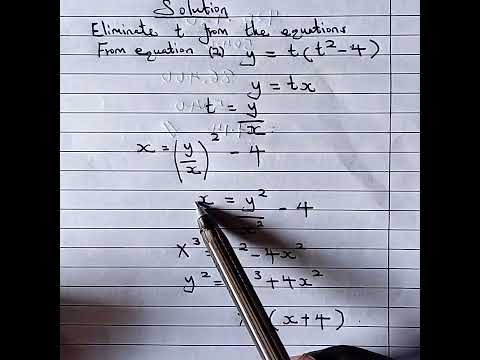 Solution
Eliminate t from the equations
From equation (2) y = t(t² - 4)
y = tx
t = y/x
x = (y/x)² - 4
x = y²/x² - 4
x³ = ² - 4x²
y² = ³ + 4x²
(x+4)